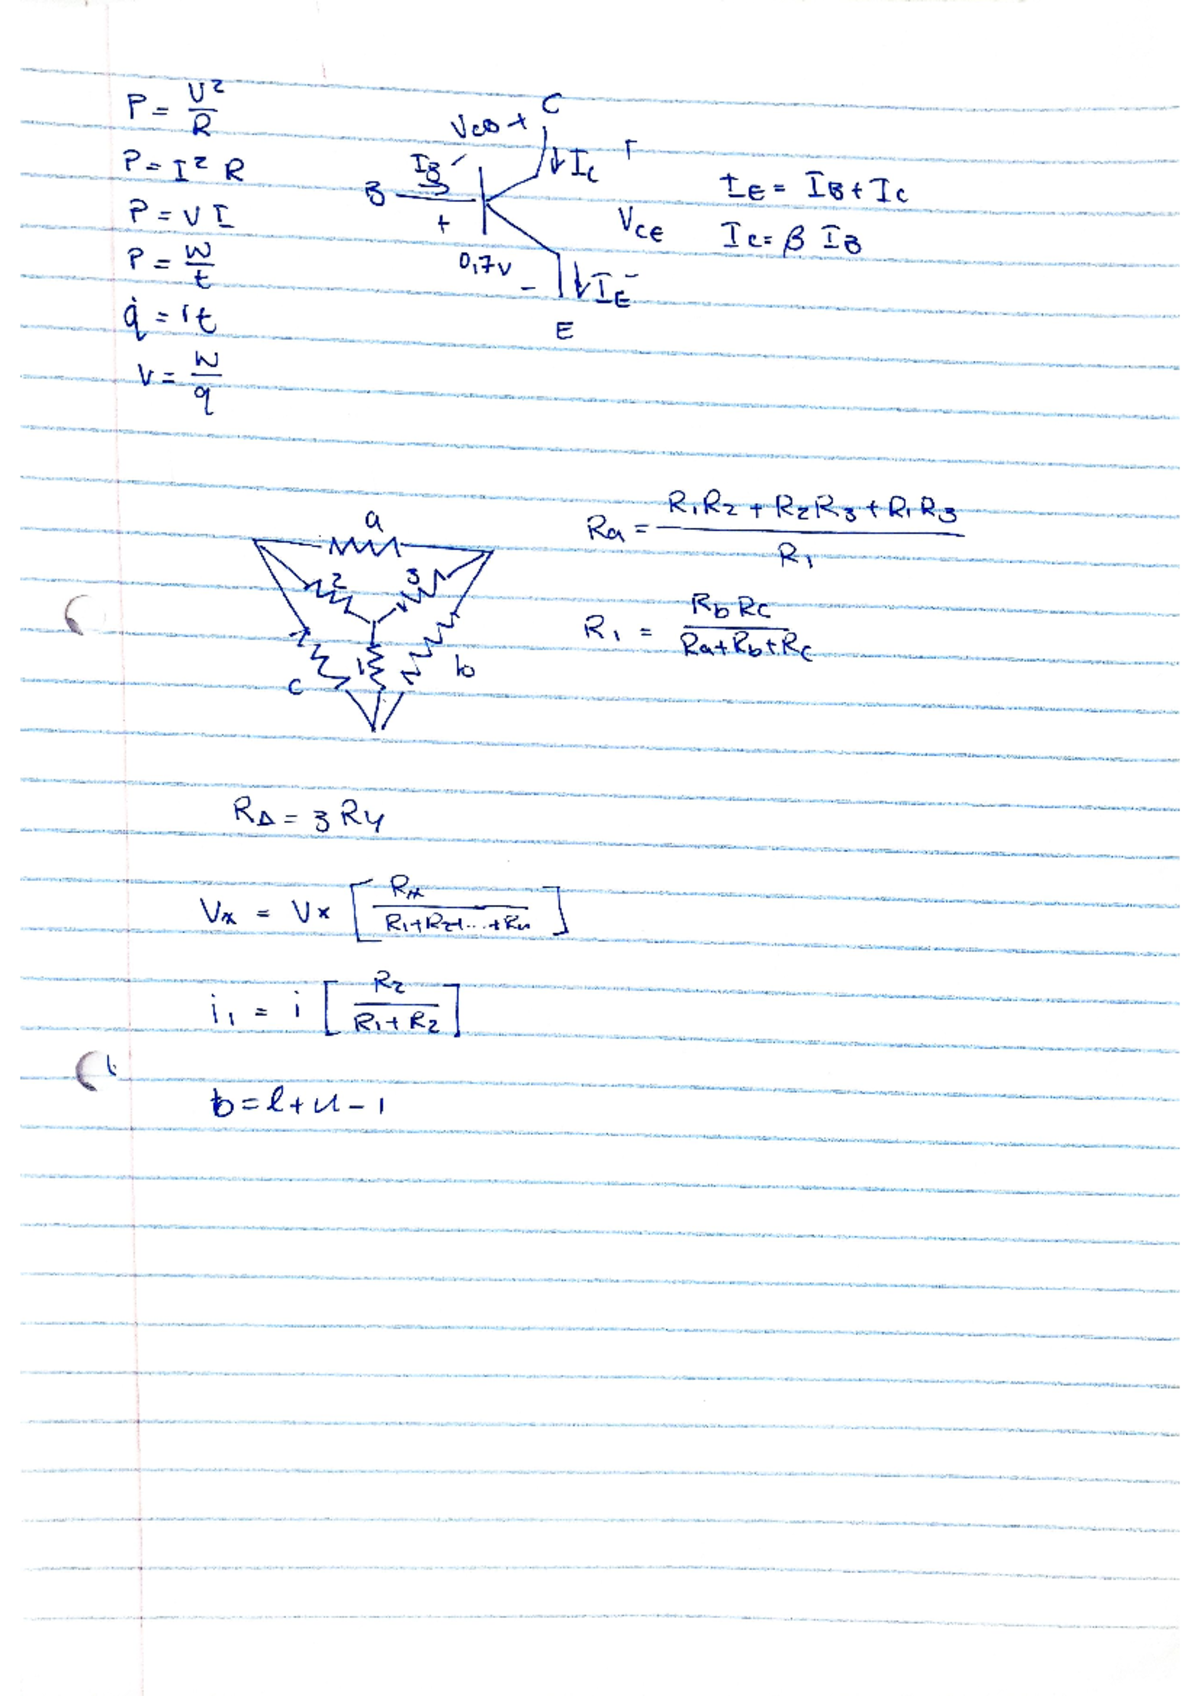 P = V²/R
P = I² R
P = V I
P = W/t
q = it
V = W/q
C
VCB +
IB -
IC
+
B
+
VCE
0,7V
-
IE -
E
IE = IB + IC
IC = β IB
a
2
3
1
b
c
Ra = (R1R2 + R2R3 + R1R3)/R1
R1 = (Rb Rc)/(Ra+Rb+Rc)
RΔ = 3 RY
Vx = Vx [Rx/(R1+R2+...+Rn)]
i1 = i [R2/(R1+R2)]
b = l + n - 1